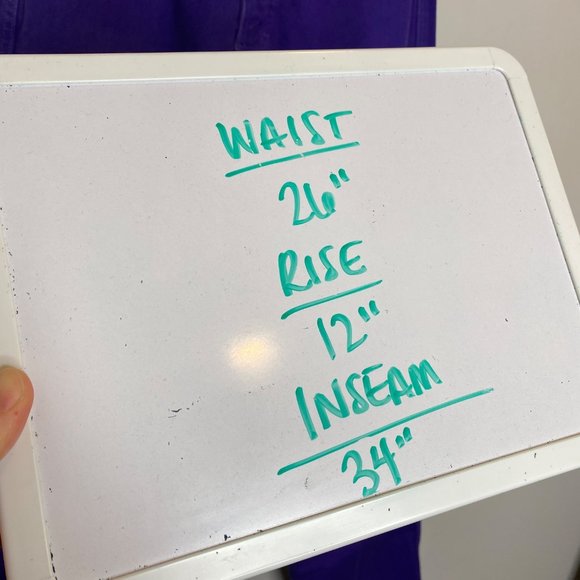 WAIST
26"
RISE
12"
INSEAM
34"